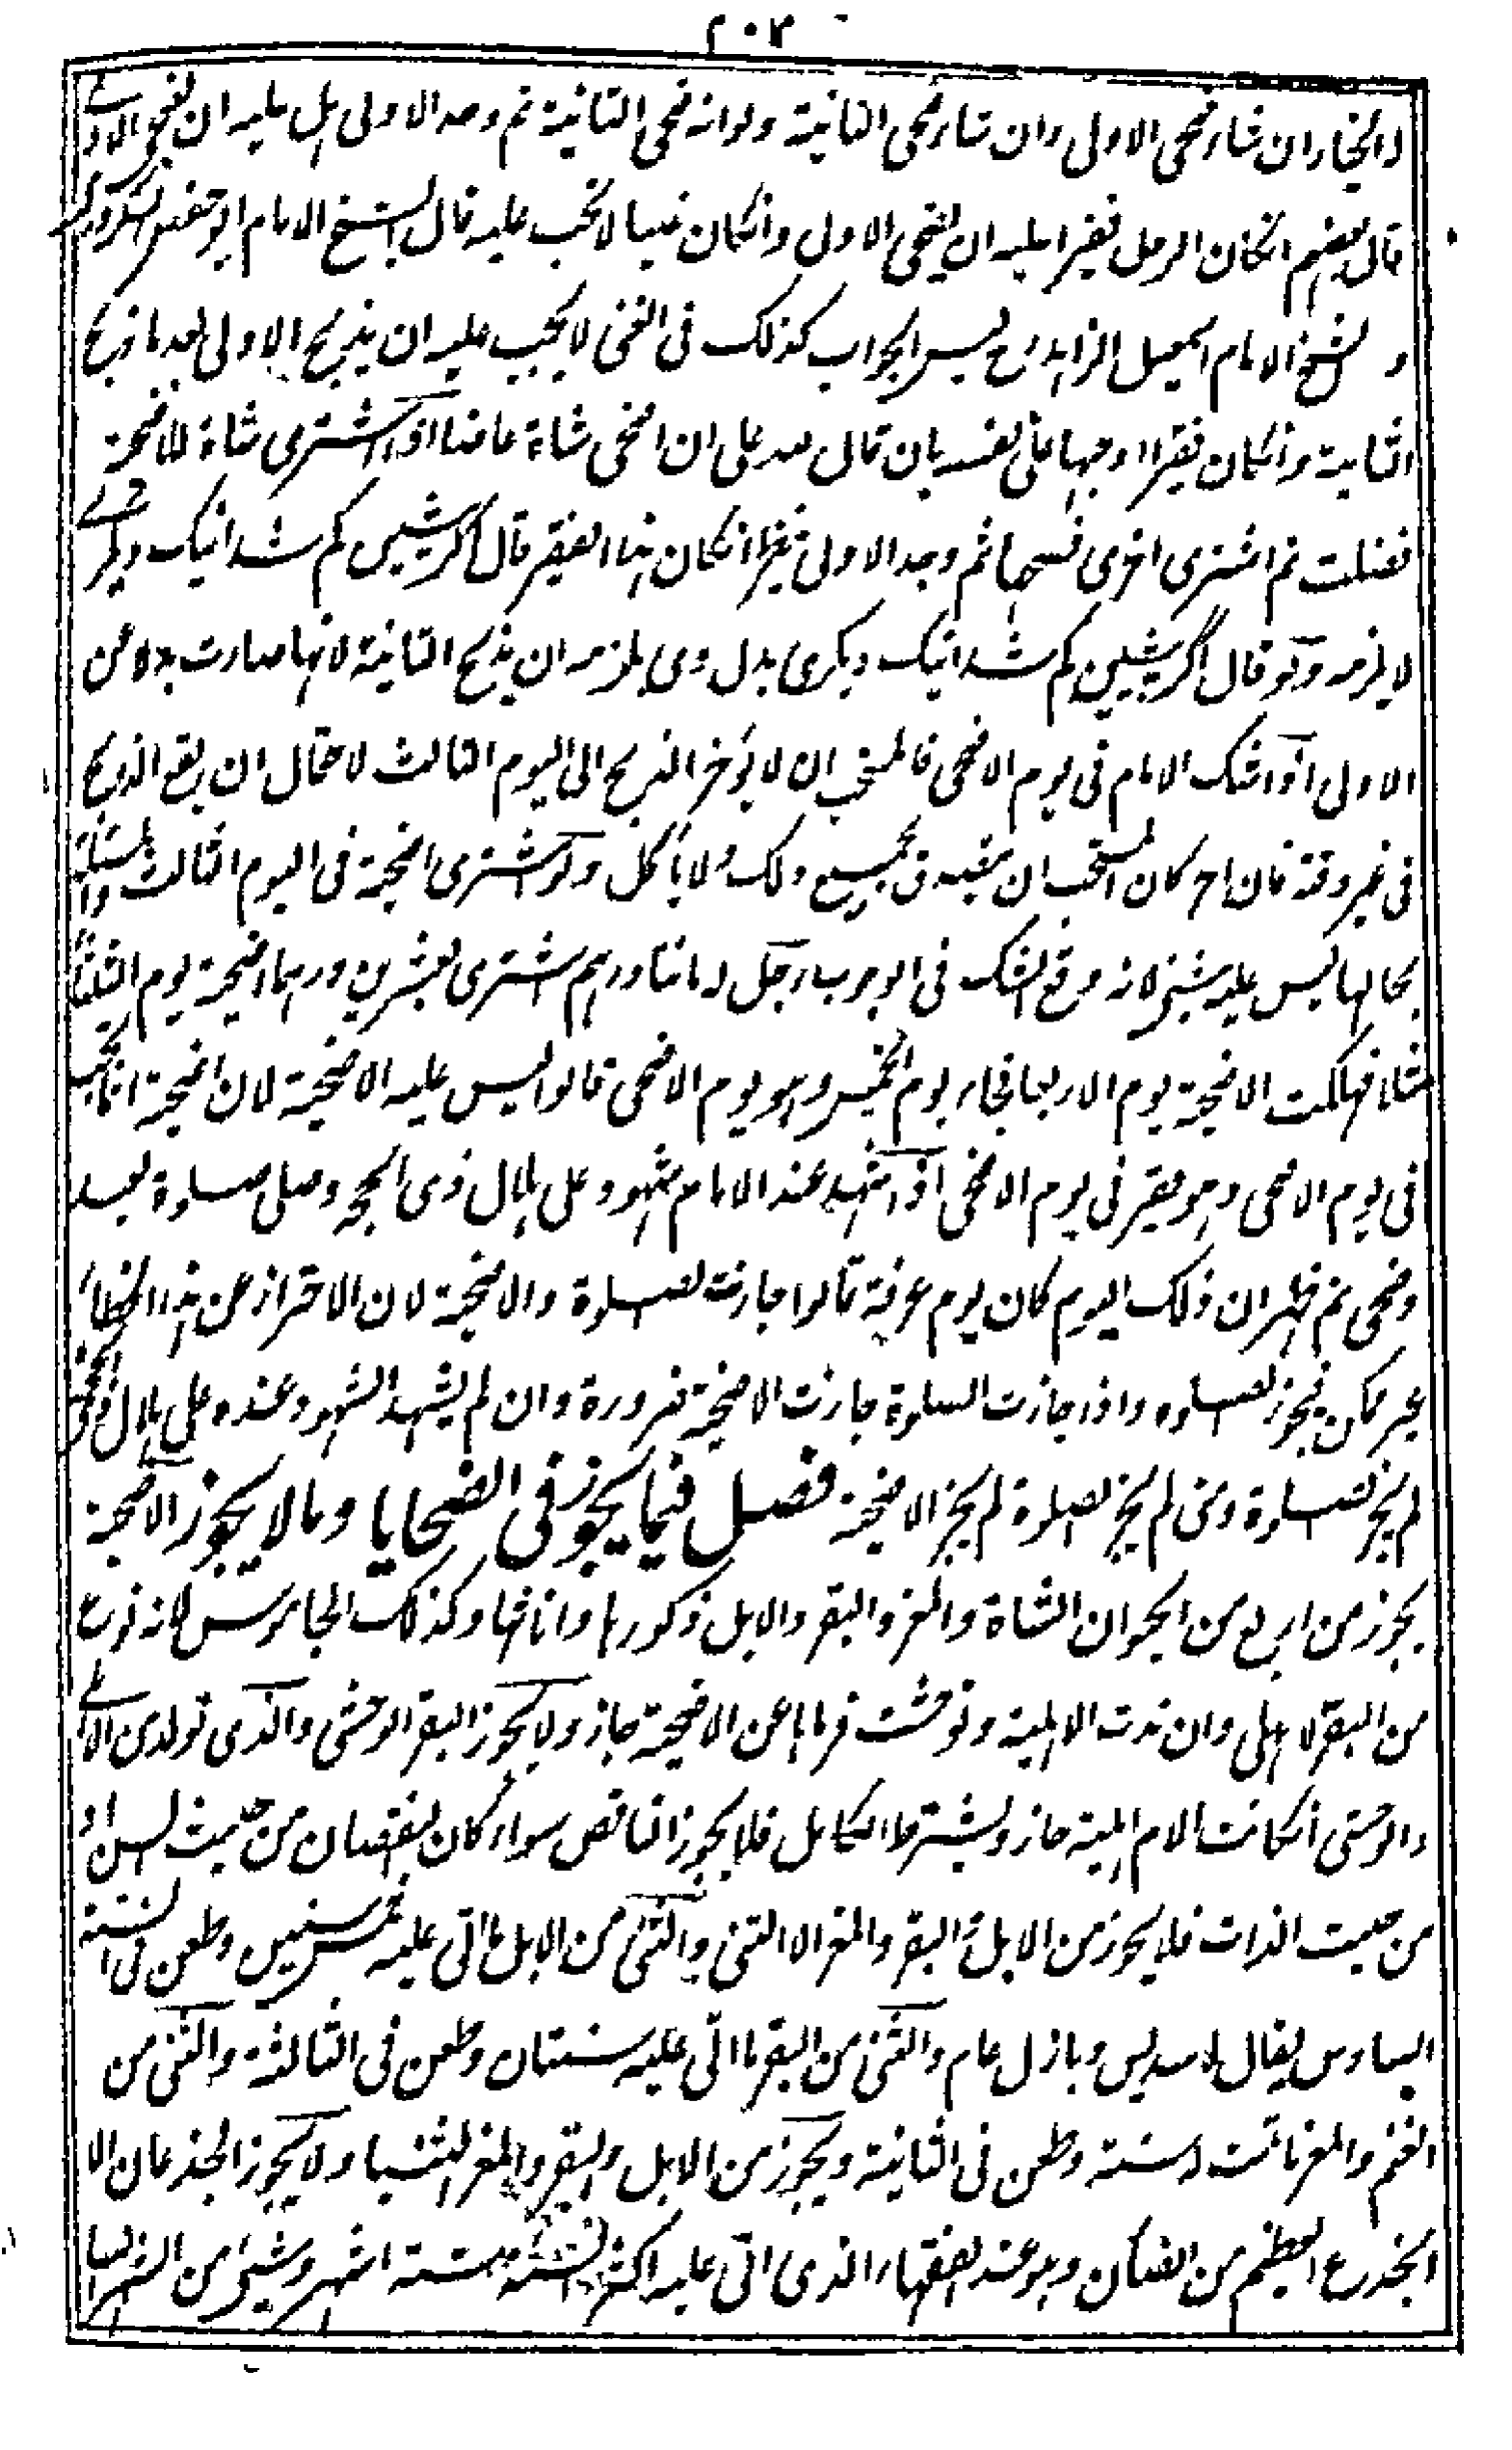 ٢٠٣
له الخيار ان شاء ضحى الاولى وان شاء ضحى الثانية ولو انه ضحى الثانية ثم وجد الاولى هل عليه ان يضحى الاولى
قال بعضهم انكان الرجل فقيرا عليه ان يضحى الاولى وانكان غنيا لا تجب عليه قال الشيخ الامام ابو حفص
والشيخ الامام اسمعيل الزاهد رح ليس الجواب كذلك فى الغنى لا يجب عليه ان يذبح الاولى بعد ما ذبح
الثانية وانكان فقيرا اوجبها على نفسه بان قال لله على ان اضحى شاة عاضا اذا اشترى شاة للاضحية
فضلت ثم اشترى اخرى فضحاها ثم وجد الاولى ينظر انكان هذا الفقير قال اگر پيشين گم شد اينك ديگرے
لا يلزمه ولو قال اگر پيشين گم شد اينك ديگرى بدل وى يلزمه ان يذبح الثانية لانها صارت بدلا عن
الاولى اذا شك الامام فى يوم الاضحى فالمستحب ان لا يؤخر الذبح الى اليوم الثالث لاحتمال ان يقع الذبح
فى غير وقته فان اخر كان المستحب ان يتصدق بجميع ذلك ولا يأكل ولو اشترى اضحية فى اليوم الثالث والمسئلة
بحالها ليس عليه شئ لانه وقع الشك فى الوجوب رجل له مائتا درهم اشترى بعشرين درهما اضحية يوم الثلثاء
مثلا فهلكت الاضحية يوم الاربعا فجاء يوم الخميس وهو يوم الاضحى قالوا ليس عليه الاضحية لان الاضحية انما تجب
فى يوم الاضحى وهو فقير فى يوم الاضحى اذا شهد عند الامام شهود على هلال ذى الحجة وصلى صلوة لعيد
وضحى ثم ظهر ان ذلك اليوم كان يوم عرفة قالوا جازت الصلوة والاضحية لان الاحتراز عن هذا الخطاء
غير ممكن فيجوز الصلوة واذا جازت الصلوة جازت الاضحية ضرورة وان لم يشهد الشهود عنده على هلال ذى الحجة
لم يجز الصلوة ومتى لم يجز الصلوة لم يجز الاضحية فصل فيما يجوز فى الضحايا وما لا يجوز الاضحية
يجوز من اربع من الحيوان الشاة والمعز والبقر والابل ذكورها واناثها وكذلك الجاموس لانه نوع
من البقر الاهلى وان ندت الاهلية وتوحشت فرماها عن الاضحية جاز ولا يجوز البقر الوحشى والذى تولد من الاهلے
والوحشى انكانت الام اهلية جاز ويشترط الكامل فلا يجوز الناقص سواء كان النقصان من حيث السن او
من حيث الذات فلا يجوز من الابل والبقر والمعز الا الثنى والثنى من الابل ما اتى عليه خمس سنين وطعن فى السنة
السادس يقال له سديس وبازل عام والثنى من البقر ما اتى عليه سنتان وطعن فى الثالثة والثنى من
الغنم والمعز ما تمت له سنة وطعن فى الثانية ويجوز من الابل والبقر والمعز الثنيا ولا يجوز الجذعان الا
الجذع العظيم من الضان وهو عند الفقهاء الذى اتى عليه اكثر السنة ستة اشهر وشىء من الشهر السا